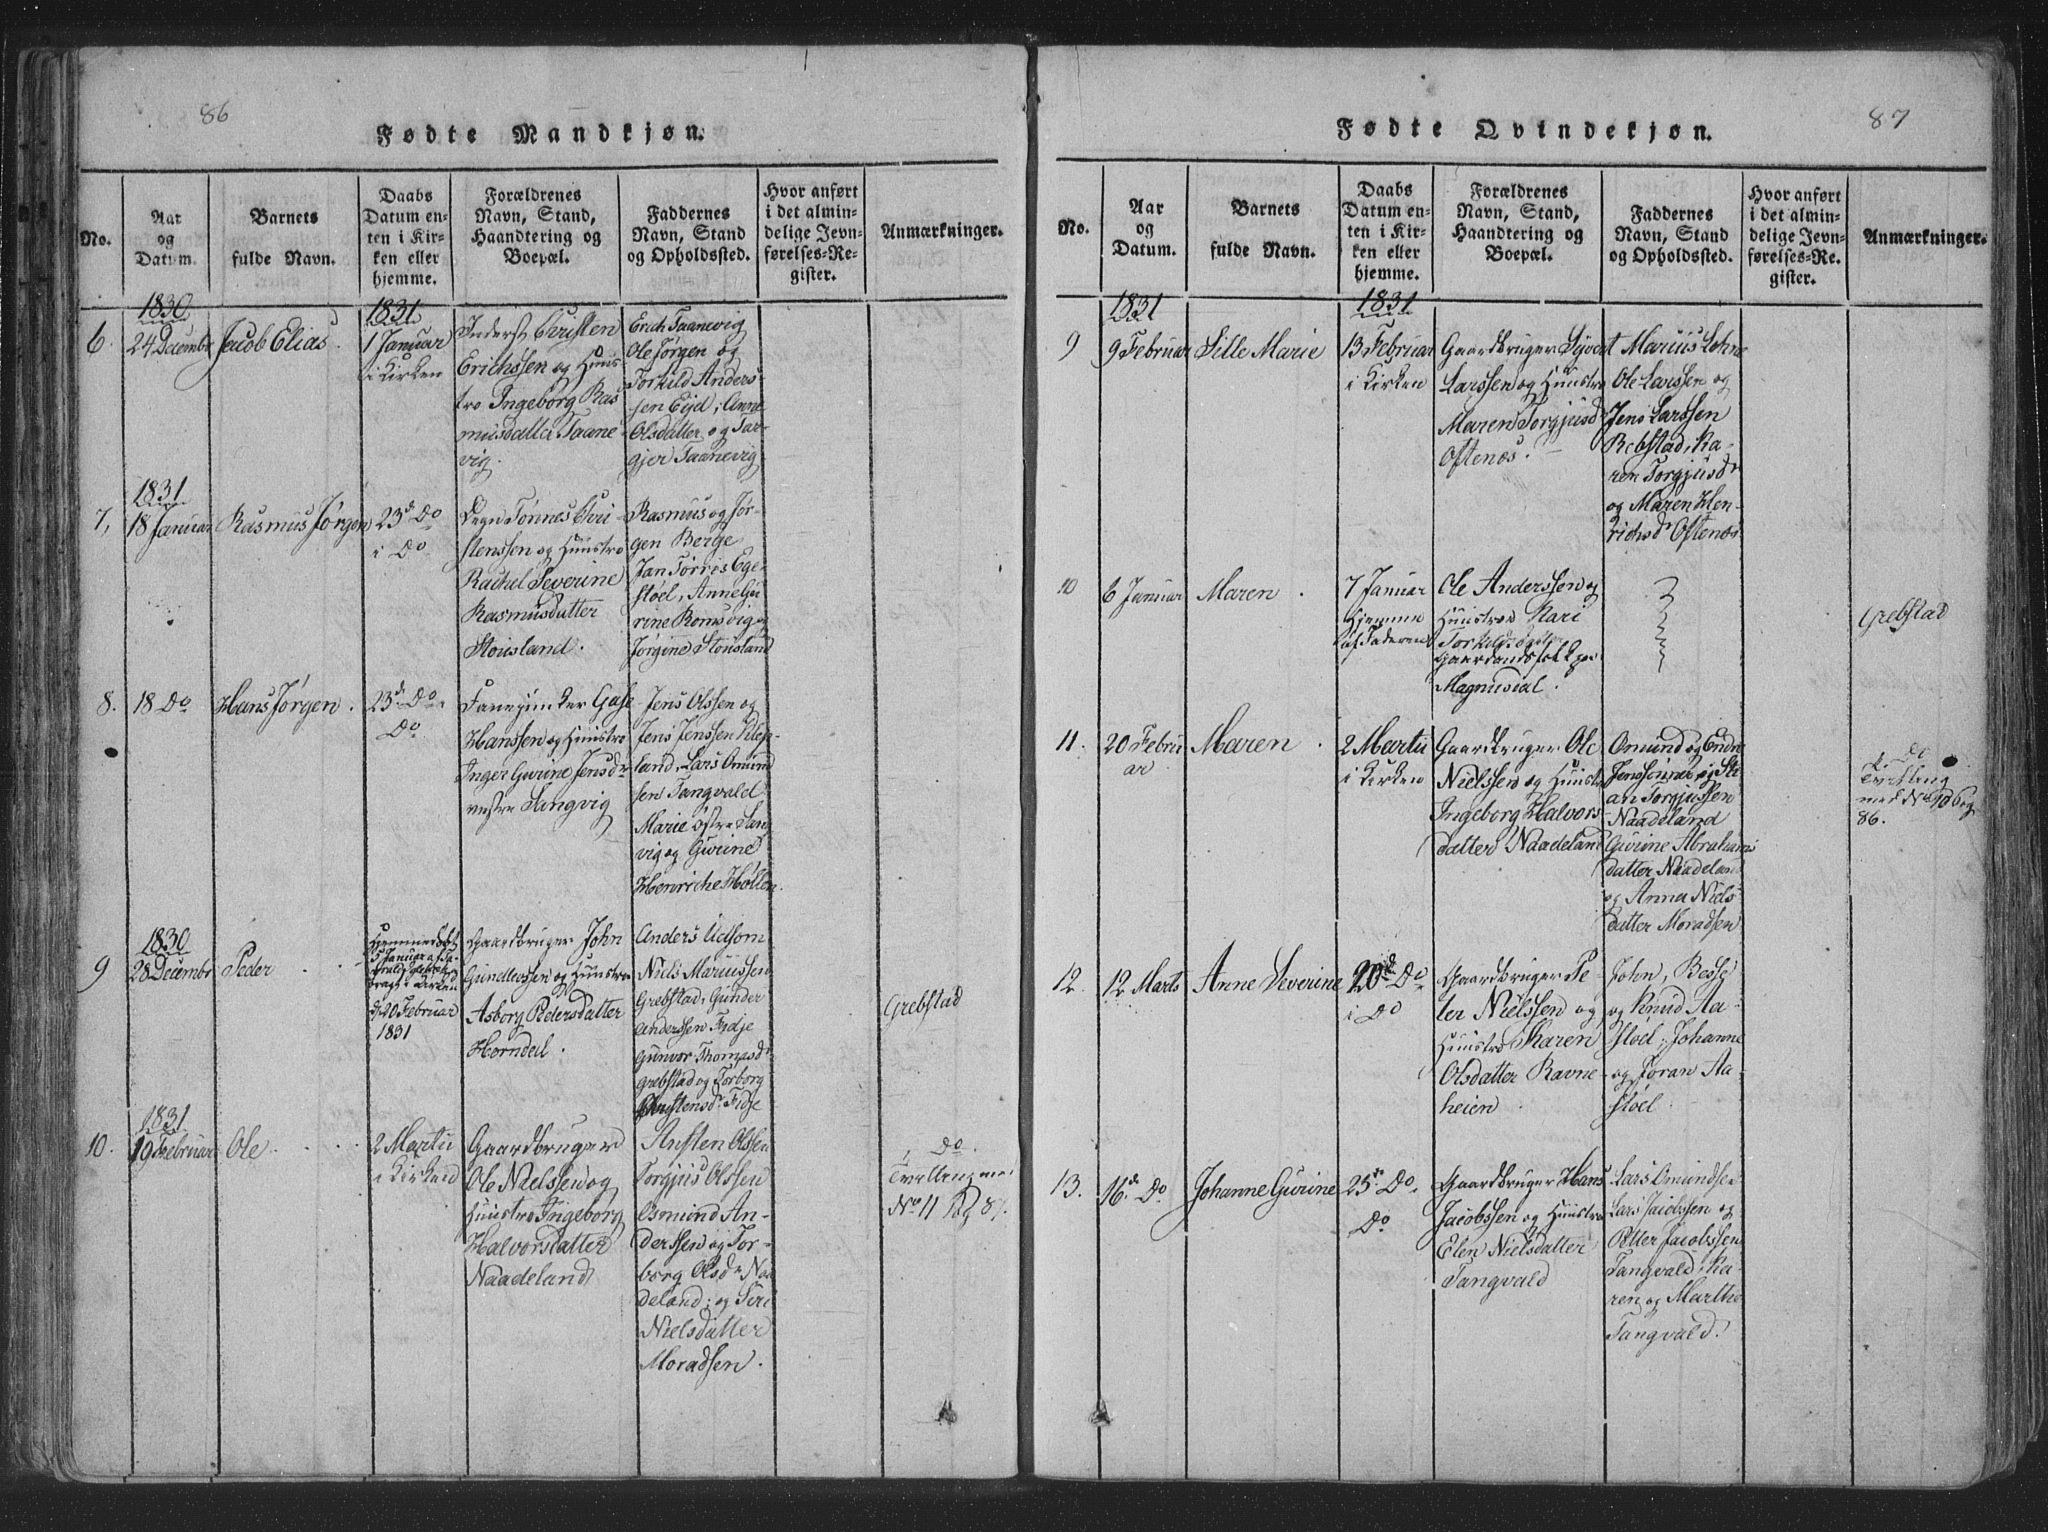 86
Fødte Mandkjøn.
No.
Aar
og
Datum.
Barnets
fulde Navn.
Daabs
Datum en-
ten i Kir-
ken eller
hjemme.
Forældrenes
Navn, Stand,
Haandtering og
Boepæl.
Faddernes
Navn, Stand
og Opholdssted.
Hvor anført
i det almin-
delige Jevn-
førelses-Re-
gister.
Anmærkninger.
6.
1830
24 Decembr
Jacob Elias
1831
1 Januar
i Kirken
Inderst Christen
Erichssen og Huus-
tro Ingeborg Ras
musdatter Taane-
vig.
Erich Taanevig
Ole Jørgen og
Torkild Anders-
sen Eijd, Anne
Olsdatter og Tar-
gjer Taanevig
7,
1831
18 Januar
Rasmus Jørgen
23de Do
i Do
Tønnes Chri
stenssen og Huustro
Rachel Severine
Rasmusdatter
Stousland.
Rasmus og Jør-
gen Berge
Jan Tørris Ege-
støel, Anne Gu
rine Romsvig og
Jørgine Stousland
8.
18 Do
Hans Jørgen.
23de Do
Do
Hanssen og Huustro
Inger Gurine Jensdr
vestre Langvig
Jens Olssen og
Jens Jenssen Klep-
land, Lars Omund
sen Tangvald
Marie østre Lang
vig og Gurine
Henriche Høllen.
9
1830
28 Decembr
Peder
5 Januar
i Kirken
d 20 Februar
1831
Gaardbruger John
Gundersen og Huustro
Asborg Pedersdatter
Horndal.
Anders Udsom
Niels Mariussen
Grebstad, Gunder
Anderssen Fidje
Gunvor Thomasdr
Grebstad og Torborg
Christensdr Fidje
Grebstad
10.
1831
19 Februar
Ole
2 Martii
i Kirken
Gaardbruger
Ole Nielssen og
Huustro Ingeborg
Halvorsdatter
Naadeland
Ansten Olssen
Torgjus Olssen
Osmund An-
derssen og Tor-
borg Olsdr Naa
deland, og Siri
Nielsdatter
Moradsen.
Do
Tvilling med
No 11 Pag 87.
87
Fødte Qvindekjøn.
No.
Aar
og
Datum.
Barnets
fulde Navn.
Daabs
Datum en-
ten i Kir-
ken eller
hjemme.
Forældrenes
Navn, Stand,
Haandtering og
Boepæl.
Faddernes
Navn, Stand
og Opholdssted.
Hvor anført
i det almin-
delige Jevn-
førelses-Re-
gister.
Anmærkninger.
9
1831
9 Februar
Sille Marie
1831
13 Februar
i Kirken
Gaardbruger Syvert
Larssen og Huustro
Maren Torgjusdr
Oftenæs.
Marius Lohne
Ole Larssen og
Jens Larssen
Rebstad, Ka-
ren Torgjusdr
og Maren Hen-
richsdr Oftenæs
10
6 Januar
Maren
7 Januar
Hjemme
af Faderen
Ole Anderssen og
Huustroe Kari
Magnusdal.
Grebstad
11.
20 Febru
ar
Maren
2 Martii
i Kirken
Gaardbruger Ole
Nielssen og Huustro
Ingeborg Halvors
datter Naadeland
Omund og
an Torgjussen
Naadeland
Gurine Abrahams
datter Naadeland
og Anna Niels
datter Moradsen
Do
Tvilling
med No 10 Pag
86.
12.
12 Marts
Anne Severine
20de Do
i Do
Gaardbruger Pe-
ter Nielssen og
Huustro Karen
Olsdatter Ravne-
heien
John, Besse
og Knud Aa-
støel, Johanne
og Jøran Aa-
støel.
13.
16de Do
Johanne Gurine
25de Do
Do
Gaardbruger Hans
Jacobssen og Huustro
Elen Nielsdatter
Tangvald
Lars Omundsen
Lars Jacobssen og
Petter Jacobssen
Tangvald, Ka-
ren og Marthe
Tangvald.